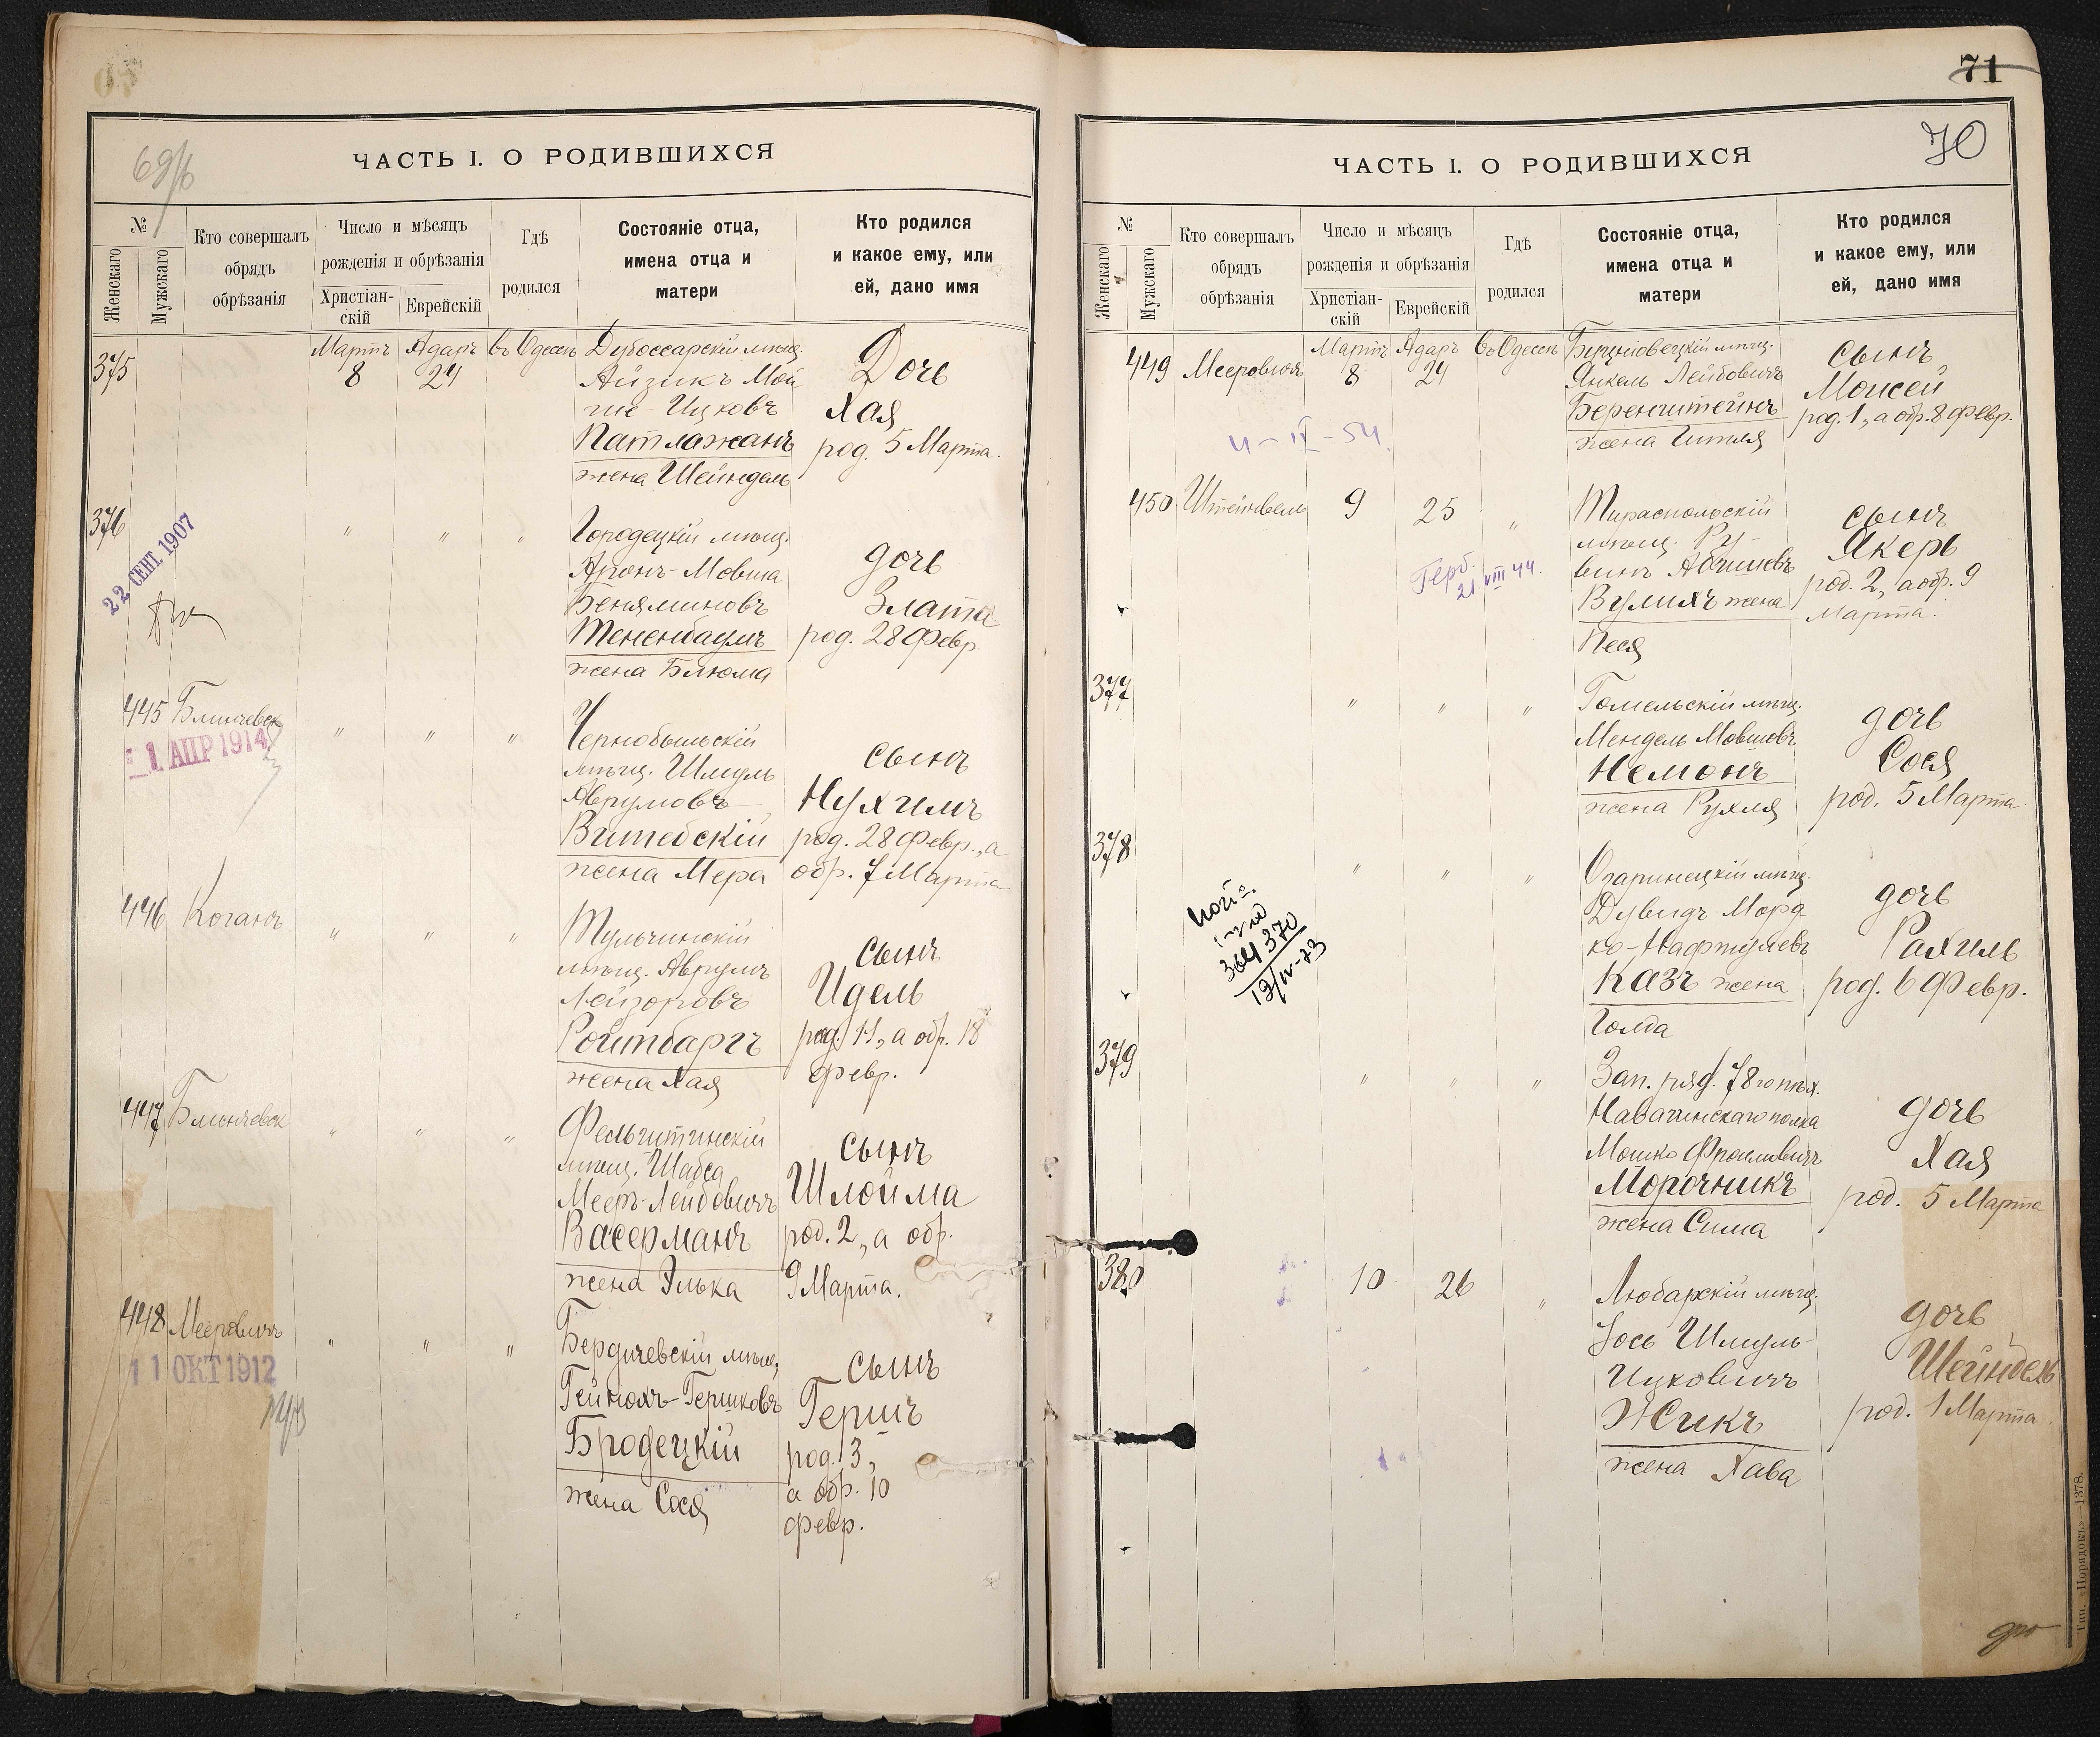 69/б
ЧАСТЬ I. О РОДИВШИХСЯ
№
Женскаго
Мужскаго
Кто совершалъ
обрядъ
обрѣзанія
Число и мѣсяцъ
рожденія и обрѣзанія
Христіан-
скій
Еврейскій
Гдѣ
родился
Состояніе отца,
имена отца и
матери
Кто родился
и какое ему, или
ей, дано имя
375
Мартъ Адаръ въ Одессѣ Дубоссарскій мѣщ.
8 24 Айзикъ Мой
ше-Ицковъ
Патлажанъ
жена Шейндель
Дочь
Хая
род. 5 Марта.
376
22 СЕНТ 1907
" " " Городецкій мѣщ.
Аронъ-Мовша
Беняминовъ
Тененбаумъ
жена Блюма
дочь
Злата
род. 28 Февр.
445 Блинчевск
1 АПР 1914
" " " Чернобыльскій
мѣщ. Шмуль
Аврумовъ
Витебскій
жена Мера
сынъ
Нухимъ
род. 28 Февр., а
обр. 7 Марта
446 Коганъ
" " " Тульчинскій
мѣщ. Аврумъ
Лейзоровъ
Ройтбаргъ
жена Хая
сынъ
Идель
род. 11, а обр. 18
февр.
447 Блинчевск
" " " Фельштинскій
мѣщ. Шабса
Мееръ-Лейбовичъ
Васерманъ
жена Элька
сынъ
Шлойма
род. 2, а обр.
9 Марта.
448 Мееровичъ
11 ОКТ 1912
" " " Бердичевскій мѣщ.
Гейнохъ-Гершковъ
Бродецкій
жена Сося
сынъ
Гершъ
род. 3,
а обр. 10
февр.
71
70
ЧАСТЬ I. О РОДИВШИХСЯ
№
Женскаго
Мужскаго
Кто совершалъ
обрядъ
обрѣзанія
Число и мѣсяцъ
рожденія и обрѣзанія
Христіан-
скій
Еврейскій
Гдѣ
родился
Состояніе отца,
имена отца и
матери
Кто родился
и какое ему, или
ей, дано имя
449 Мееровичъ
Мартъ Адаръ въ Одессѣ
8 24
мѣщ.
Янкель Лейбовичъ
Беренштейнъ
жена Гитля
сынъ
Моисей
род. 1, а обр. 8 Февр.
450
9 25 " Тираспольскій
мѣщ. Ру-
винъ Абишевъ
Вулихъ жена
Песя
сынъ
Якеръ
род. 2, а обр. 9
Марта.
Герб.
21.VIII 44.
377
" " " Гомельскій мѣщ.
Мендель Мовшовъ
Немонъ
жена Рухля
дочь
Сося
род. 5 Марта
378
" " " мѣщ.
Дувидъ Морд
ко-Нафтулевъ
Казъ жена
Голда
дочь
Рахиль
род. 6 Февр.
364370
13/IV-73
379
" " " Зап. ряд. 78го пѣх.
Навагинскаго полка
Мошко Фроимовичъ
Морочникъ
жена Сима
дочь
Хая
род. 5 Марта
380
10 26 " Любарскій мѣщ.
Іось Шмуль-
Ицковичъ
Жикъ
жена Хава
дочь
Шейндель
род. 1 Марта.
Тип. «Порядокъ»—1378.